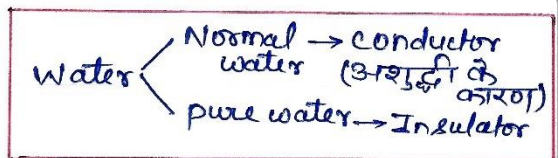 Water
Normal → conductor
water (अशुद्धी के
कारण)
pure water → Insulator